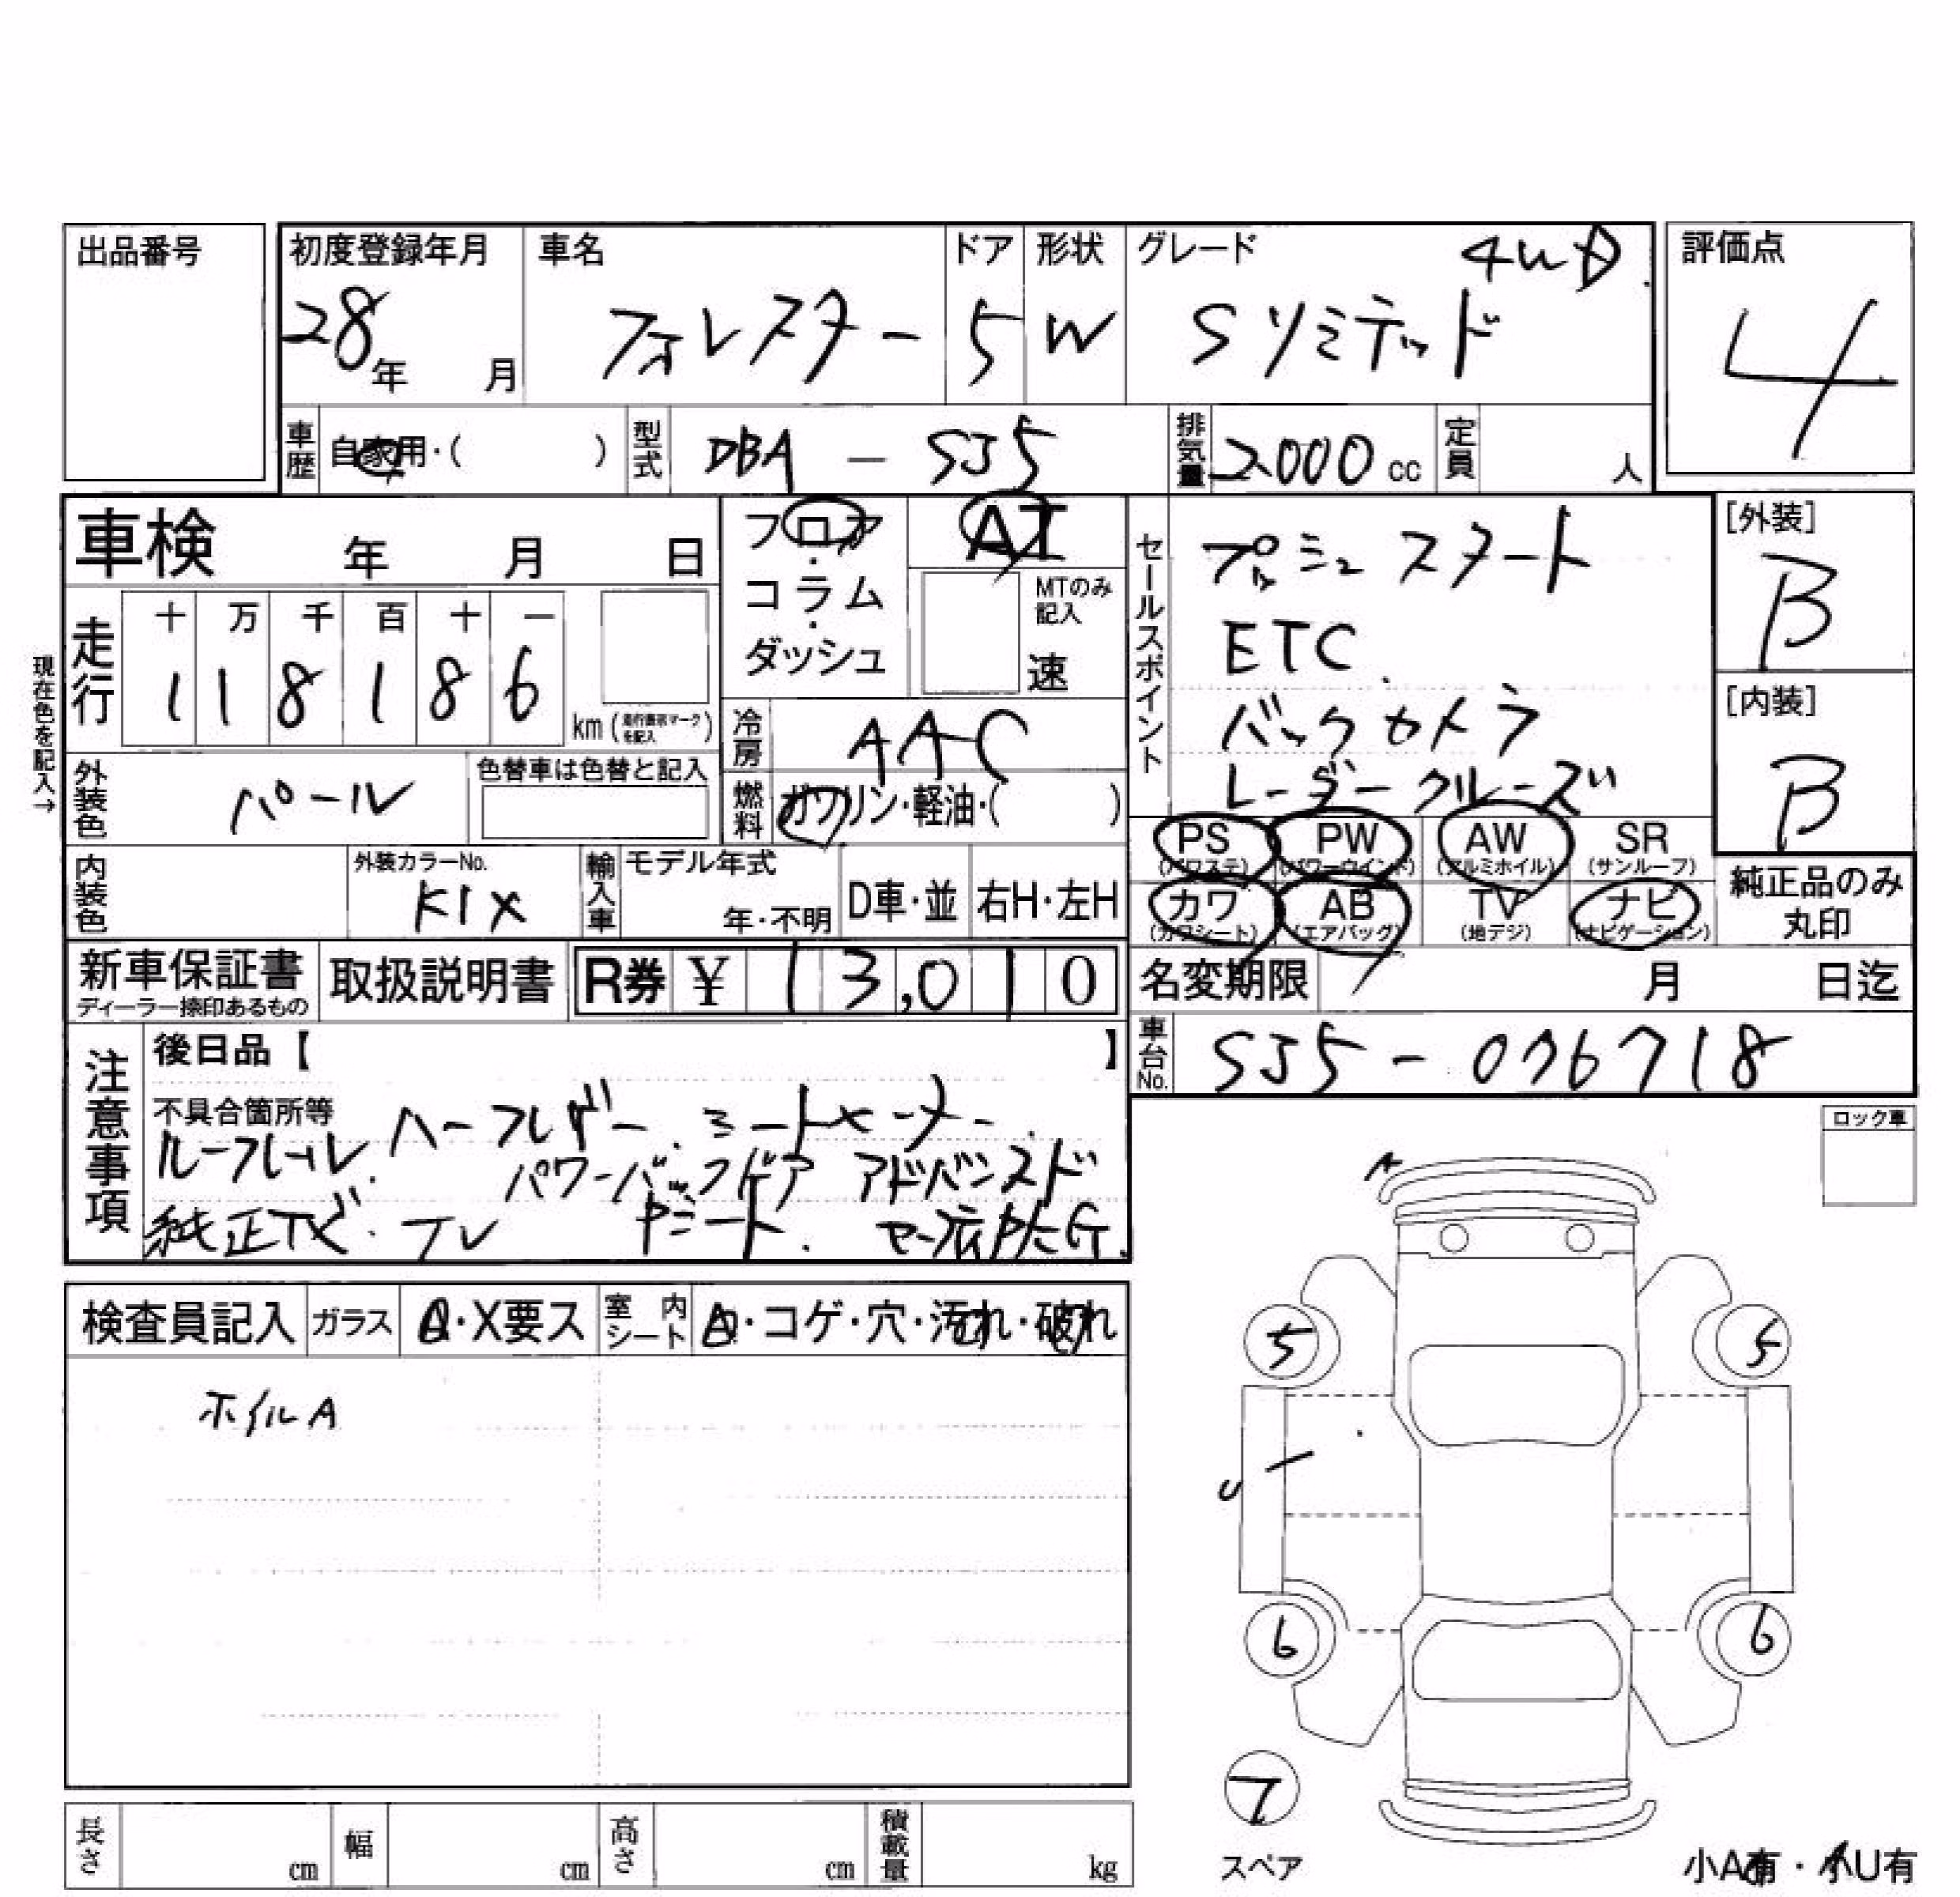 出品番号
初度登録年月 28年 月
車名 フォレスター
ドア 5
形状 W
グレード 4WD
Sリミテッド
評価点 4
車歴 自家用・( )
型式 DBA - SJ5
排気量 2000cc
定員 人
車検 年 月 日
フロア・コラム・ダッシュ
AT
MTのみ記入
速
セールスポイント
プッシュスタート
ETC.
バックカメラ
レーダークルーズ
[外装] B
[内装] B
現在色を記入→
走行 十万千百十一
118186 km (走行表示マークを記入)
冷房 AAC
燃料 ガソリン・軽油・( )
外装色 パール
色替車は色替と記入
内装色
外装カラーNo. K1X
輸入車 モデル年式 年・不明
D車・並
右H・左H
PS (パワステ) PW (パワーウインド) AW (アルミホイル) SR (サンルーフ)
カワ (カワシート) AB (エアバッグ) TV (地デジ) ナビ (ナビゲーション)
純正品のみ丸印
新車保証書 ディーラー捺印あるもの
取扱説明書
R券 ¥ 13,010
名変期限 月 日迄
車台No. SJ5-076718
注意事項
後日品【 】
不具合箇所等 ハーフレザー. シートヒーター.
ルーフレール. パワーバックドア アドバンスド
純正 TV Pシート. セーフ
ロック車
検査員記入 ガラス A・X要ス 室内シート A・コゲ・穴・汚れ・破れ
ホイルA
A
5 5
U
6 6
7
スペア
長さ cm 幅 cm 高さ cm 積載量 kg
小A有・小U有